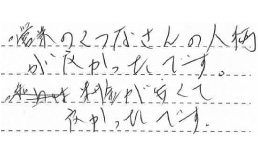 営業のくつなさんの人柄
が良かったです。
料金が安くて
良かったです。